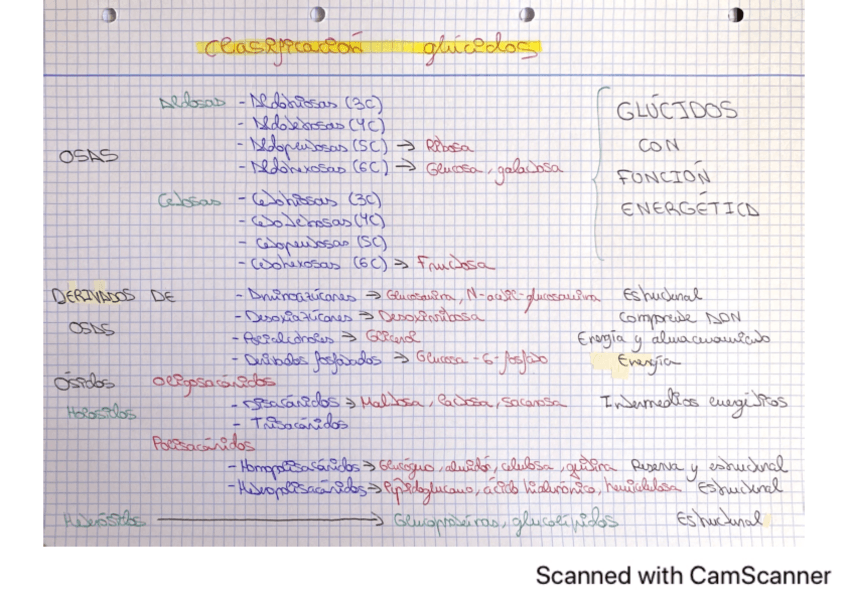 Clasificación glúcidos
Aldosas - Aldotriosas (3C)
- Aldotetrosas (4C)
- Aldopentosas (5C) → Ribosa
OSAS
- Aldohexosas (6C) → Glucosa, galactosa
GLÚCIDOS
CON
FUNCIÓN
ENERGÉTICA
Cetosas - Cetotriosas (3C)
- Cetotetrosas (4C)
- Cetopentosas (5C)
- Cetohexosas (6C) → Fructosa
DERIVADOS DE OSAS
- Aminoazúcares → Glucosamina, N-acetil-glucosamina Estructural
- Desoxiazúcares → Desoxirribosa Compone ADN
- Polialcoholes → Glicerol Energía y almacenamiento
- Derivados fosfatados → Glucosa-6-fosfato Energía
Ósidos Oligosacáridos
Holósidos
- Disacáridos → Maltosa, lactosa, sacarosa Intermedios energéticos
- Trisacáridos
Polisacáridos
- Homopolisacáridos → Glucógeno, almidón, celulosa, quitina Reserva y estructural
- Heteropolisacáridos → Peptidoglucano, ácido hialurónico, hemicelulosa Estructural
Heterósidos → Glucoproteínas, glucolípidos Estructural
Scanned with CamScanner